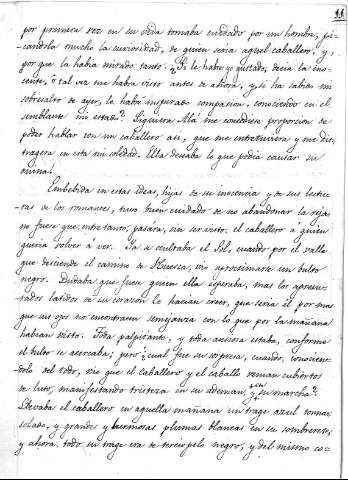 por primera vez en su vida tomaba cuidado por un hombre, pi-
candola mucho la curiosidad, de quien seria aquel caballero, y
por que la habia mirado tanto. ¿Si le habré yo gustado, decia la ino-
cente, ó tal vez me habrá visto antes de ahora, y si ha sabido mi
sobresalto de ayer, le habré inspirado compasion, conociendo en el
semblante mi estado? Siquiera Alá me concediera proporcion de
poder hablar con un caballero asi, que me entretuviera y me dis-
tragera en esta mi soledad. Ella deseaba lo que podia causar su
ruina!
Embebida en estas ideas, hijas de su inocencia y de sus lectu-
ras de los romances, tuvo buen cuidado de no abandonar la reja
no fuera que, entre tanto, pasara, sin ser visto, el caballero á quien
queria volver á ver. Ya se ocultaba el Sol, cuando por el valle
que desciende el camino de Huesca, vió aproximarse un bulto
negro. Dudaba que fuera quien ella esperaba, mas los apresu-
rados latidos de su corazon le hacian creer, que seria él por mas
que sus ojos no encontrasen semejanza con lo que por la mañana
habian visto. Toda palpitante, y toda ansiosa estaba, conforme
el bulto se acercaba; pero ¿cual fue su sorpresa, cuando, conocien-
dolo del todo, vió que el caballero y el caballo venian cubiertos
de luto, manifestando tristeza en su ademan, y en su marcha?
Llevaba el caballero en aquella mañana un trage azul torna-
solado, y grandes y hermosas plumas blancas en su sombrerete;
y ahora, todo su trage era de terciopelo negro, y del mismo co-